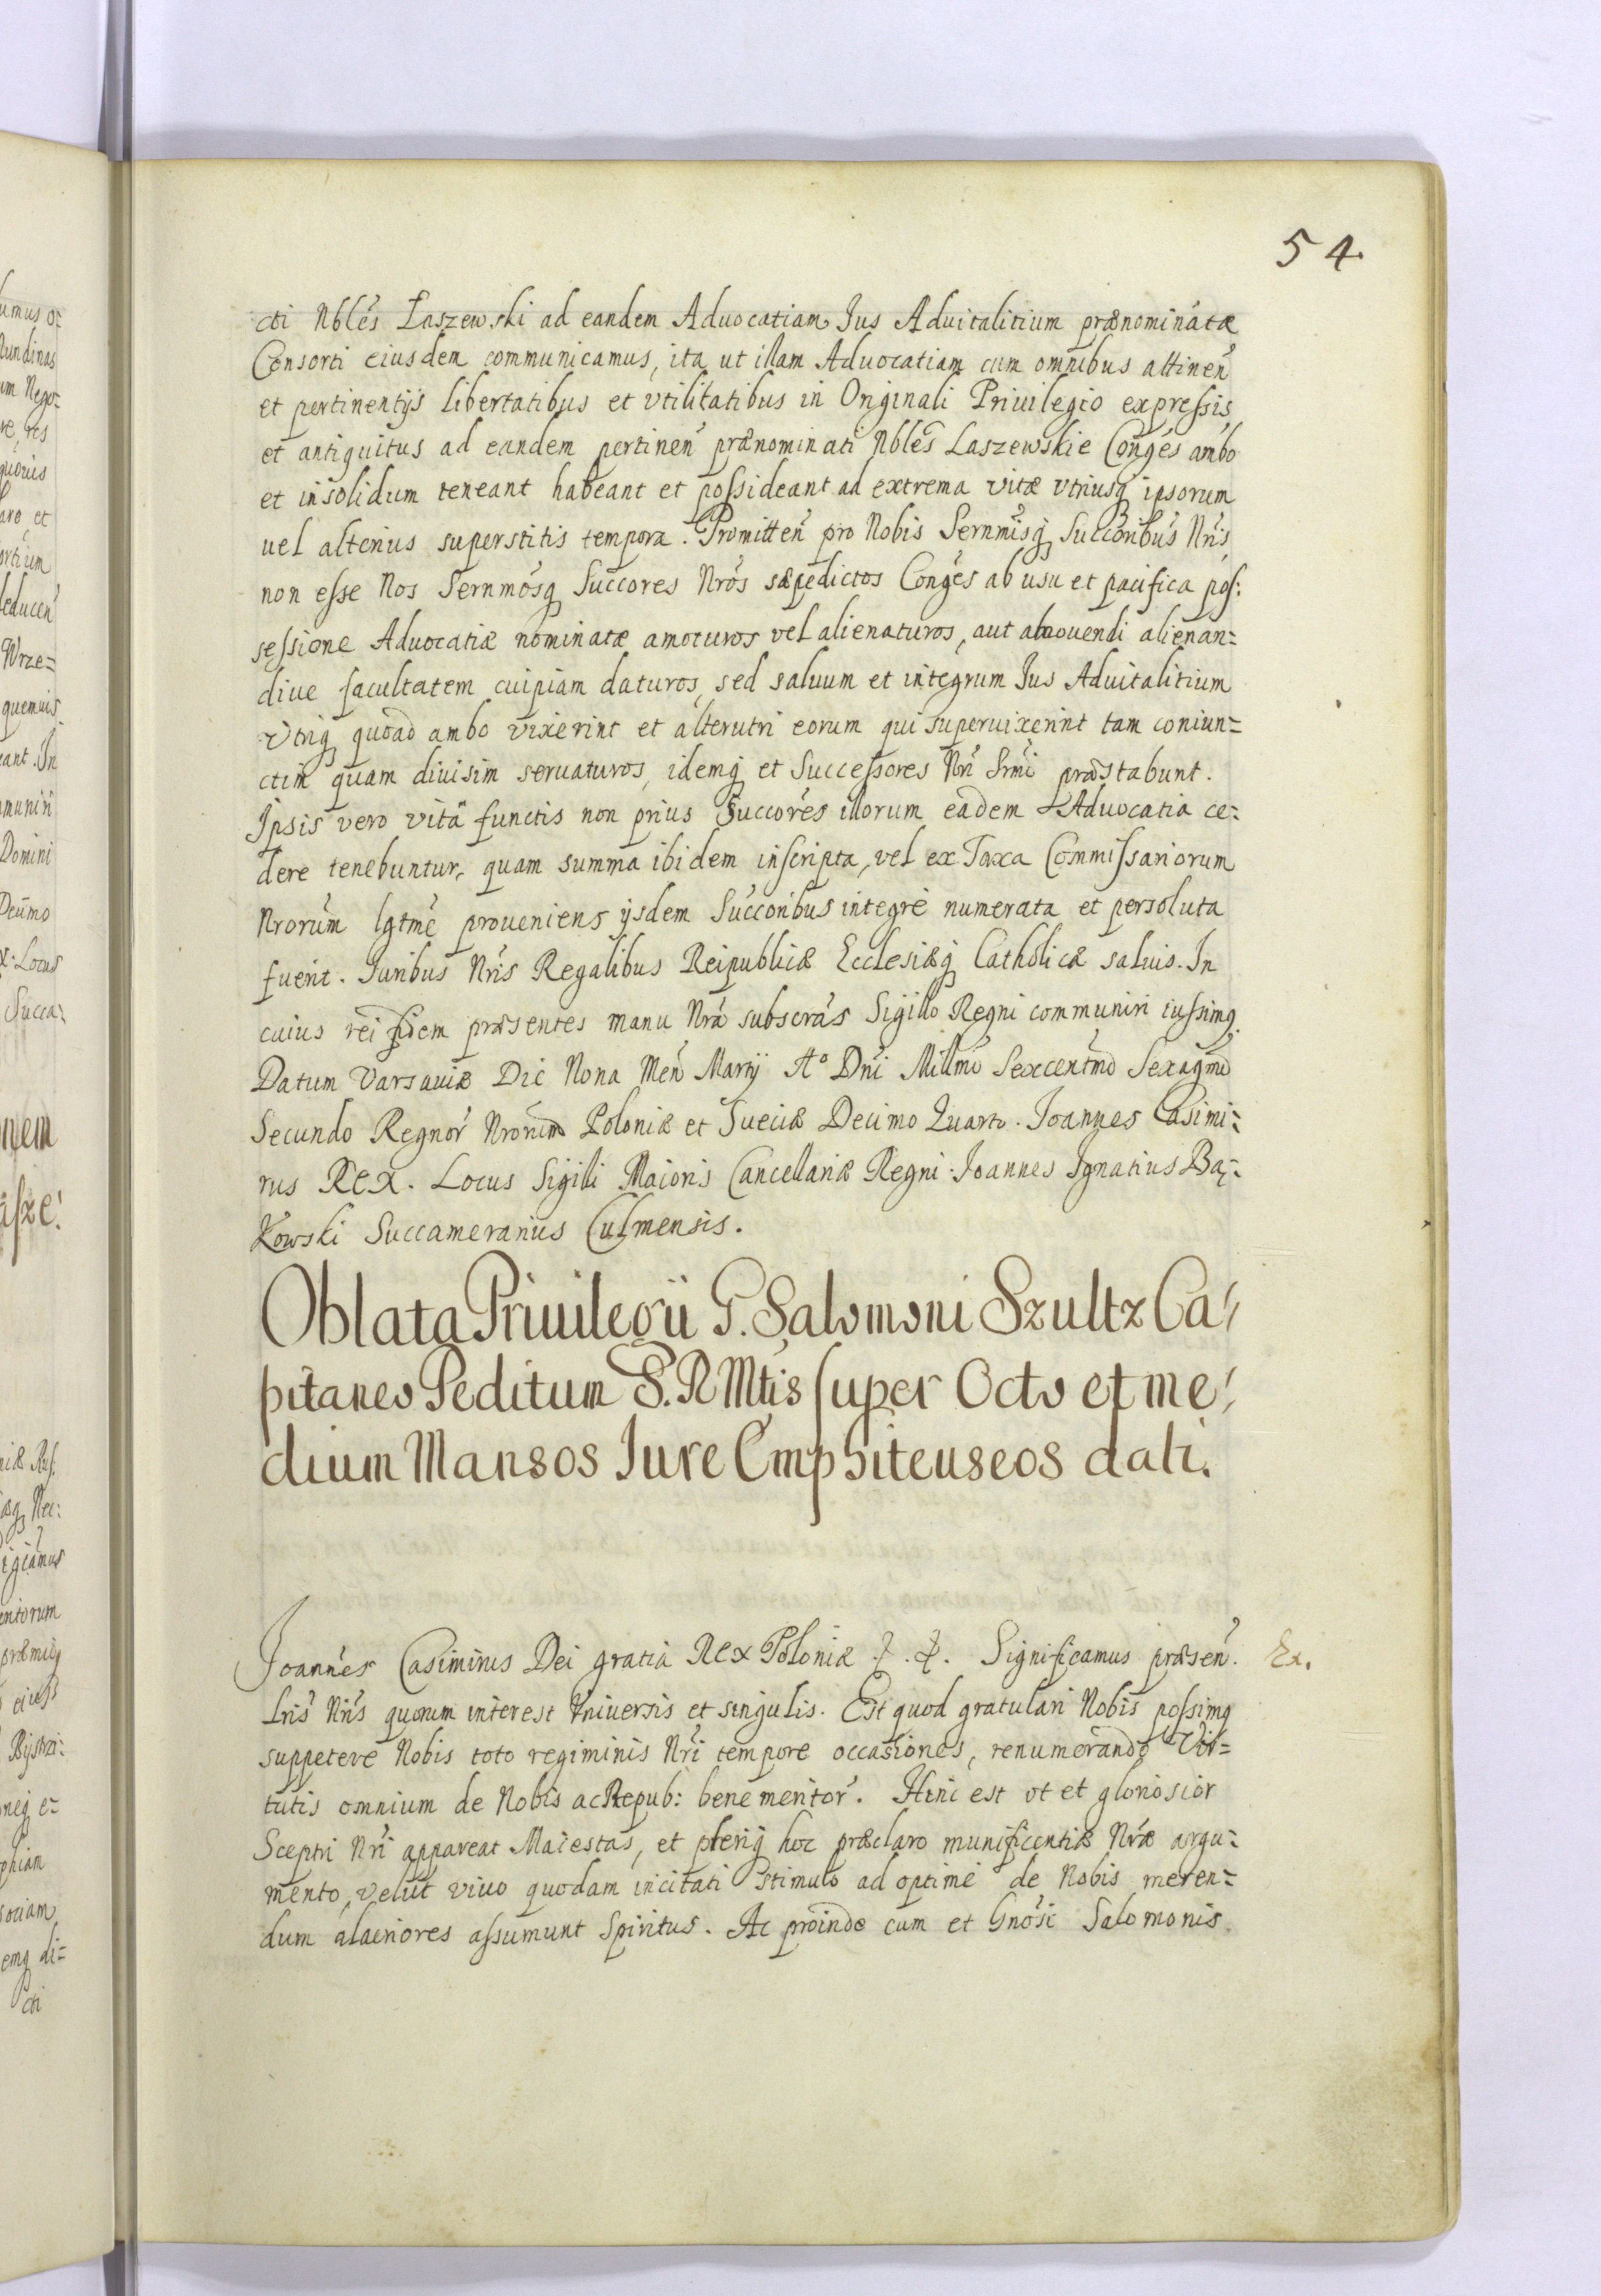 54.
cti Nbles Laszewski ad eandem Aduocatiam Jus Aduitalitium prænominatæ
Consorti eiusdem communicamus, ita ut illam Aduocatiam cum omnibus attinen
et pertinentijs libertatibus et vtilitatibus in Originali Priuilegio expressis
et antiquitus ad eandem pertinen prænominati Nbles Laszewskie Conges ambo
et insolidum teneant habeant et possideant ad extrema vitæ vtriusq ipsorum
uel alterius superstitis tempora. Promitten pro Nobis Sernmisq Succoribus Nris
non esse Nos Sernmosq Succores Nros sæpedictos Conges ab usu et pacifica pos:
sessione Aduocatiæ nominatæ amoturos vel alienaturos, aut amouendi alienan=
diue facultatem cuipiam daturos, sed saluum et integrum Jus Aduitalitium
vtriq quoad ambo vixerint et alterutri eorum qui superuixerint tam coniun=
ctim quam diuisim seruaturos, idemq et Successores Nri Srmi præstabunt.
Ipsis vero vitâ functis non prius Succores illorum eadem Aduocatia ce:
dere tenebuntur, quam summa ibidem inscripta, vel ex Taxa Commissariorum
Nrorum lgtme proueniens ijsdem Succoribus integre numerata et persoluta
fuerit. Juribus Nris Regalibus Reipublicæ Ecclesiæq Catholicæ saluis. In
cuius rei fidem præsentes manu Nra subscras Sigillo Regni communiri iussimq.
Datum Varsauiæ Die Nona Men Martij Aº Dni Millmo Sexcentmo Sexagmo
Secundo Regnor Nrorum Poloniæ et Sueciæ Decimo Quarto. Joannes Casimi=
rus Rex. Locus Sigilli Maioris Cancellariæ Regni. Joannes Ignatius Bą=
Kowski Succamerarius Culmensis.
Oblata Priuilegii G. Salomoni Szultz Ca//
pitaneo Peditum S. R Mtis super Octo et me/
dium Mansos Jure Emphiteuseos dati.
Joannes Casimirus Dei gratia Rex Poloniæ &. &. Significamus præsen. Ex.
Lris Nris quorum interest Vniuersis et singulis. Est quod gratulari Nobis possimq
suppetere Nobis toto regiminis Nri tempore occasiones, renumerando Vir=
tutis omnium de Nobis ac Repub: bene meritor. Hinc est vt et gloriosior
Sceptri Nri appareat Maiestas, et pleriq hoc præclaro munificentiæ Nræ argu=
mento, velut viuo quodam incitati stimulo ad optime de Nobis meren=
dum alacriores assumunt Spiritus. Ac proinde cum et Gnosi Salomonis